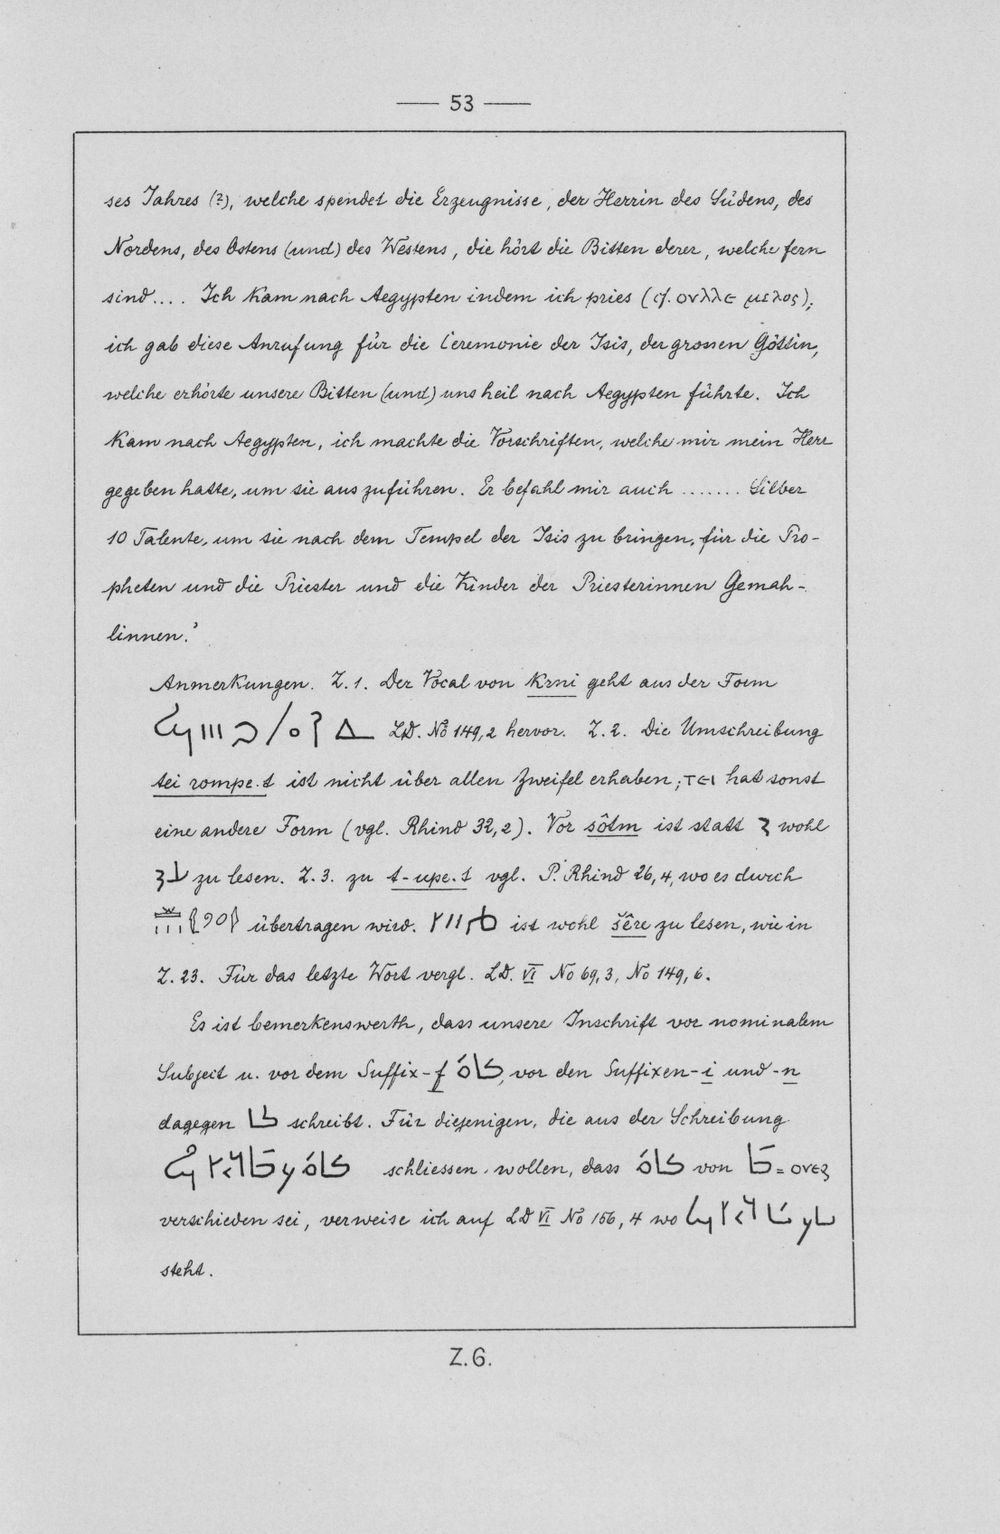 — 53 —
ses Jahres (?), welche spendet die Erzeugnisse, der Herrin des Südens, des
Nordens, des Ostens (und) des Westens, die hört die Bitten derer, welche fern
sind.... Ich kam nach Aegypten indem ich pries (cf. ⲟⲩⲗⲗⲉ μελος);
ich gab diese Anrufung für die Ceremonie der Isis, der grossen Göttin,
welche erhörte unsere Bitten (und) uns heil nach Aegypten führte. Ich
kam nach Aegypten, ich machte die Vorschriften, welche mir mein Herr
gegeben hatte, um sie auszuführen. Er befahl mir auch ....... Silber
10 Talente, um sie nach dem Tempel der Isis zu bringen, für die Pro-
pheten und die Priester und die Kinder der Priesterinnen Gemah-
linnen.'
Anmerkungen. Z.1. Der Vocal von krni geht aus der Form
LD. No 149,2 hervor. Z.2. Die Umschreibung
tei rompe.t ist nicht über allen Zweifel erhaben; ⲧⲉⲓ hat sonst
eine andere Form (vgl. Rhind 32,2). Vor sôtm ist statt wohl
zu lesen. Z.3. zu t-upe.t vgl. P. Rhind 26,4, wo es durch
übertragen wird. ist wohl šêre zu lesen, wie in
Z.23. Für das letzte Wort vergl. LD. VI No 69,3, No 149,6.
Es ist bemerkenswerth, dass unsere Inschrift vor nominalem
Subject u. vor dem Suffix -f , vor den Suffixen -i und -n
dagegen schreibt. Für diejenigen, die aus der Schreibung
schliessen wollen, dass von = ⲟⲩⲉϩ
verschieden sei, verweise ich auf LD VI No 156, 4 wo
steht.
Z.G.